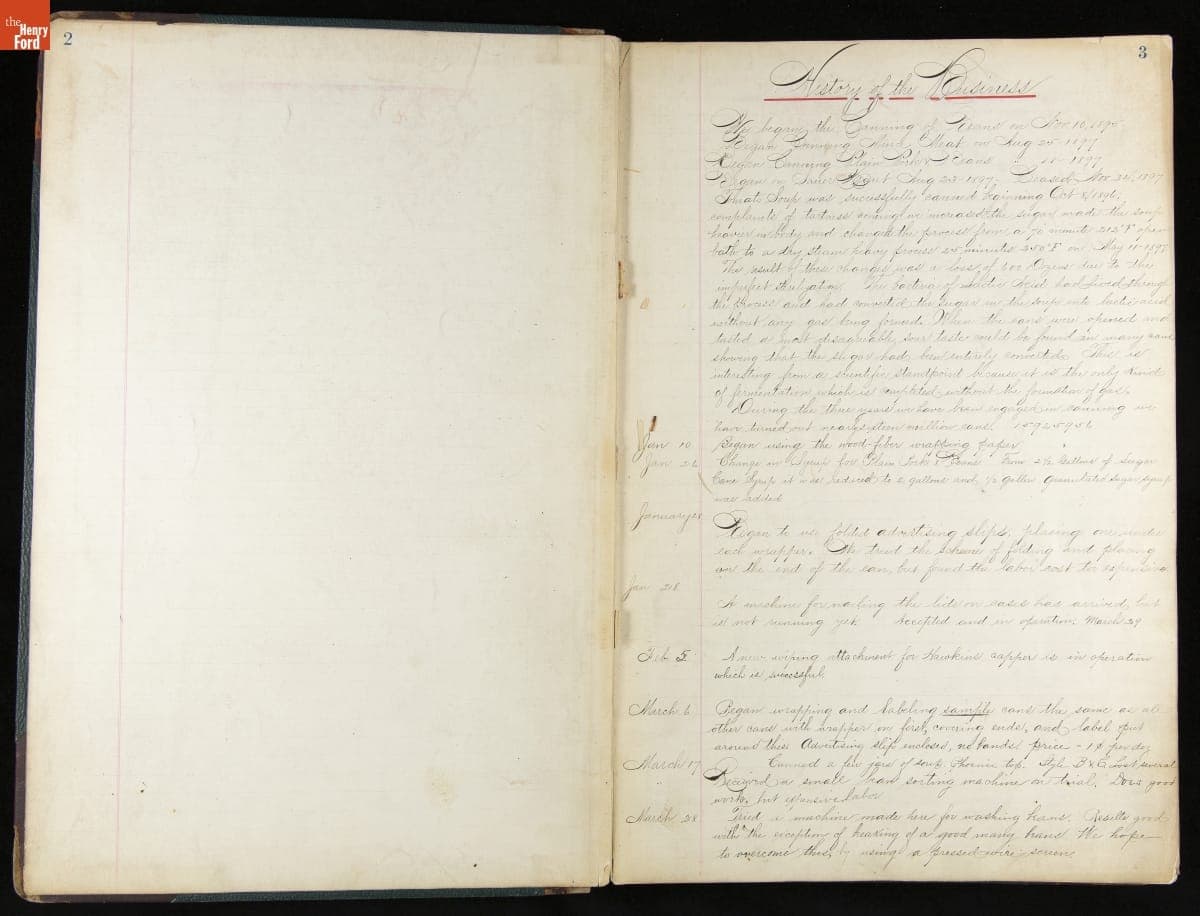 the
Henry
Ford
2
3
History of the Business
We began the Canning of Beans on Nov. 10, 1895
Began Canning Mince Meat on Aug 25 - 1897
Began Canning Plain Pork & Beans " 18 - 1897
Began on Aug 23 - 1897 - Ceased Nov 1897
Tomato Soup was successfully canned beginning Oct 8/1896.
complaints of tartness coming in we increased the sugar made the soup
heavier in body and changed the process from a 70 minute 212°F open
bath to a dry steam heavy process 25 minutes 250°F on May 11 - 1897
The result of these changes was a loss of 600 Dozens due to the
imperfect sterilization. The bacteria of Lactic Acid had lived through
the Process and had converted the sugar in the soup into lactic acid
without any gas being formed. When the cans were opened and
tasted a most disagreeable sour taste could be found in many cans
showing that the sugar had been entirely converted. This is
interesting from a scientific standpoint because it is the only kind
of fermentation which is completed without the formation of gas.
During the three years we have been engaged in canning we
have turned out nearly sixteen million cans. 15925956
Jan 10 Began using the wood-fiber wrapping paper
Jan 26 Change in Syrup for Plain Pork & Beans From 2½ Gallons of Sugar
Cane Syrup it was reduced to 2 gallons and ½ gallon granulated sugar syrup
was added
January 28
Began to use folded advertising slips, placing one under
each wrapper. We tried the scheme of folding and placing
on the end of the can, but found the labor cost too expensive
Jan 28
A machine for nailing the lids on cases has arrived, but
is not running yet. Accepted and in operation. March 29
Feb 5 A new wiping attachment for Hawkins capper is in operation
which is successful.
March 6 Began wrapping and labeling sample cans the same as all
other cans with wrapper on first, covering ends, and label put
around this. Advertising slip enclosed, no bands price - 1¢ per doz
March 17 Canned a few jars of soup. Phoenix top. Style B & C. Lost several
Received a small bean sorting machine on trial. Does good
work, but expensive labor
March 28 Tried a machine made here for washing beans. Results good
with the exception of breaking of a good many beans. We hope
to overcome this by using a pressed wire screen.